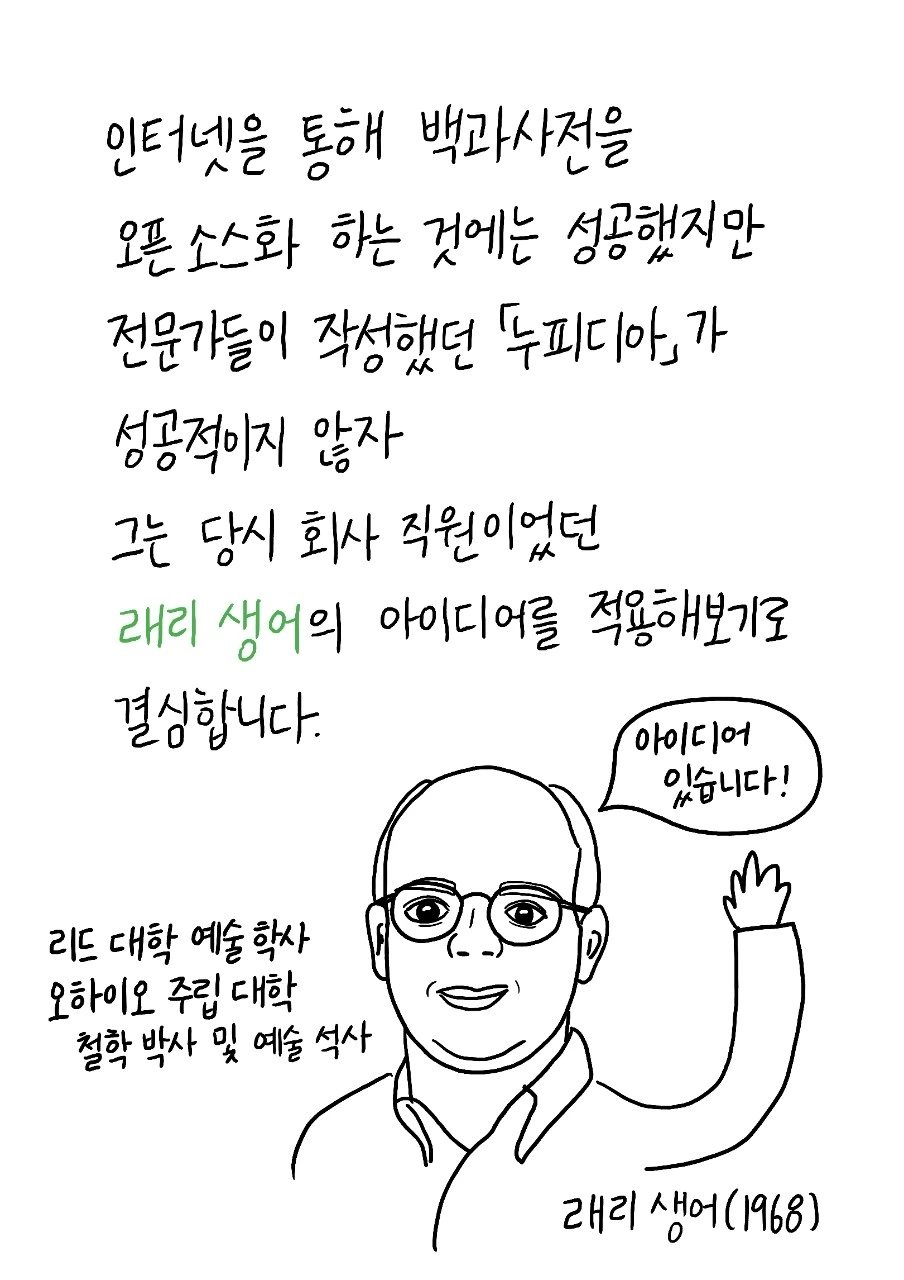 인터넷을 통해 백과사전을
오픈 소스화 하는 것에는 성공했지만
전문가들이 작성했던 「누피디아」가
성공적이지 않자
그는 당시 회사 직원이었던
래리 생어의 아이디어를 적용해보기로
결심합니다.
아이디어
있습니다!
리드 대학 예술 학사
오하이오 주립 대학
철학 박사 및 예술 석사
래리 생어(1968)